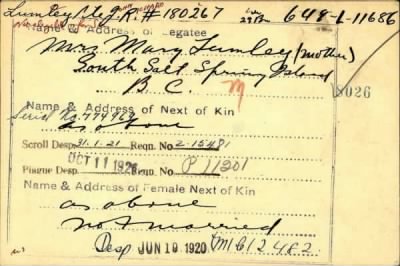 Lumley Pte J.R. # 180267 648-L-11686
Name & Address of Legatee
Mrs Mary Lumley (mother)
South Salt Spring Island
B.C. M
18026
Name & Address of Next of Kin
as above
Scroll Desp. 31.1.21 Reqn. No. 2-15481
Plaque Desp. OCT 11 192 Reqn. No. P 11201
Name & Address of Female Next of Kin
as above
not married
Desp JUN 10 1920 M 612482